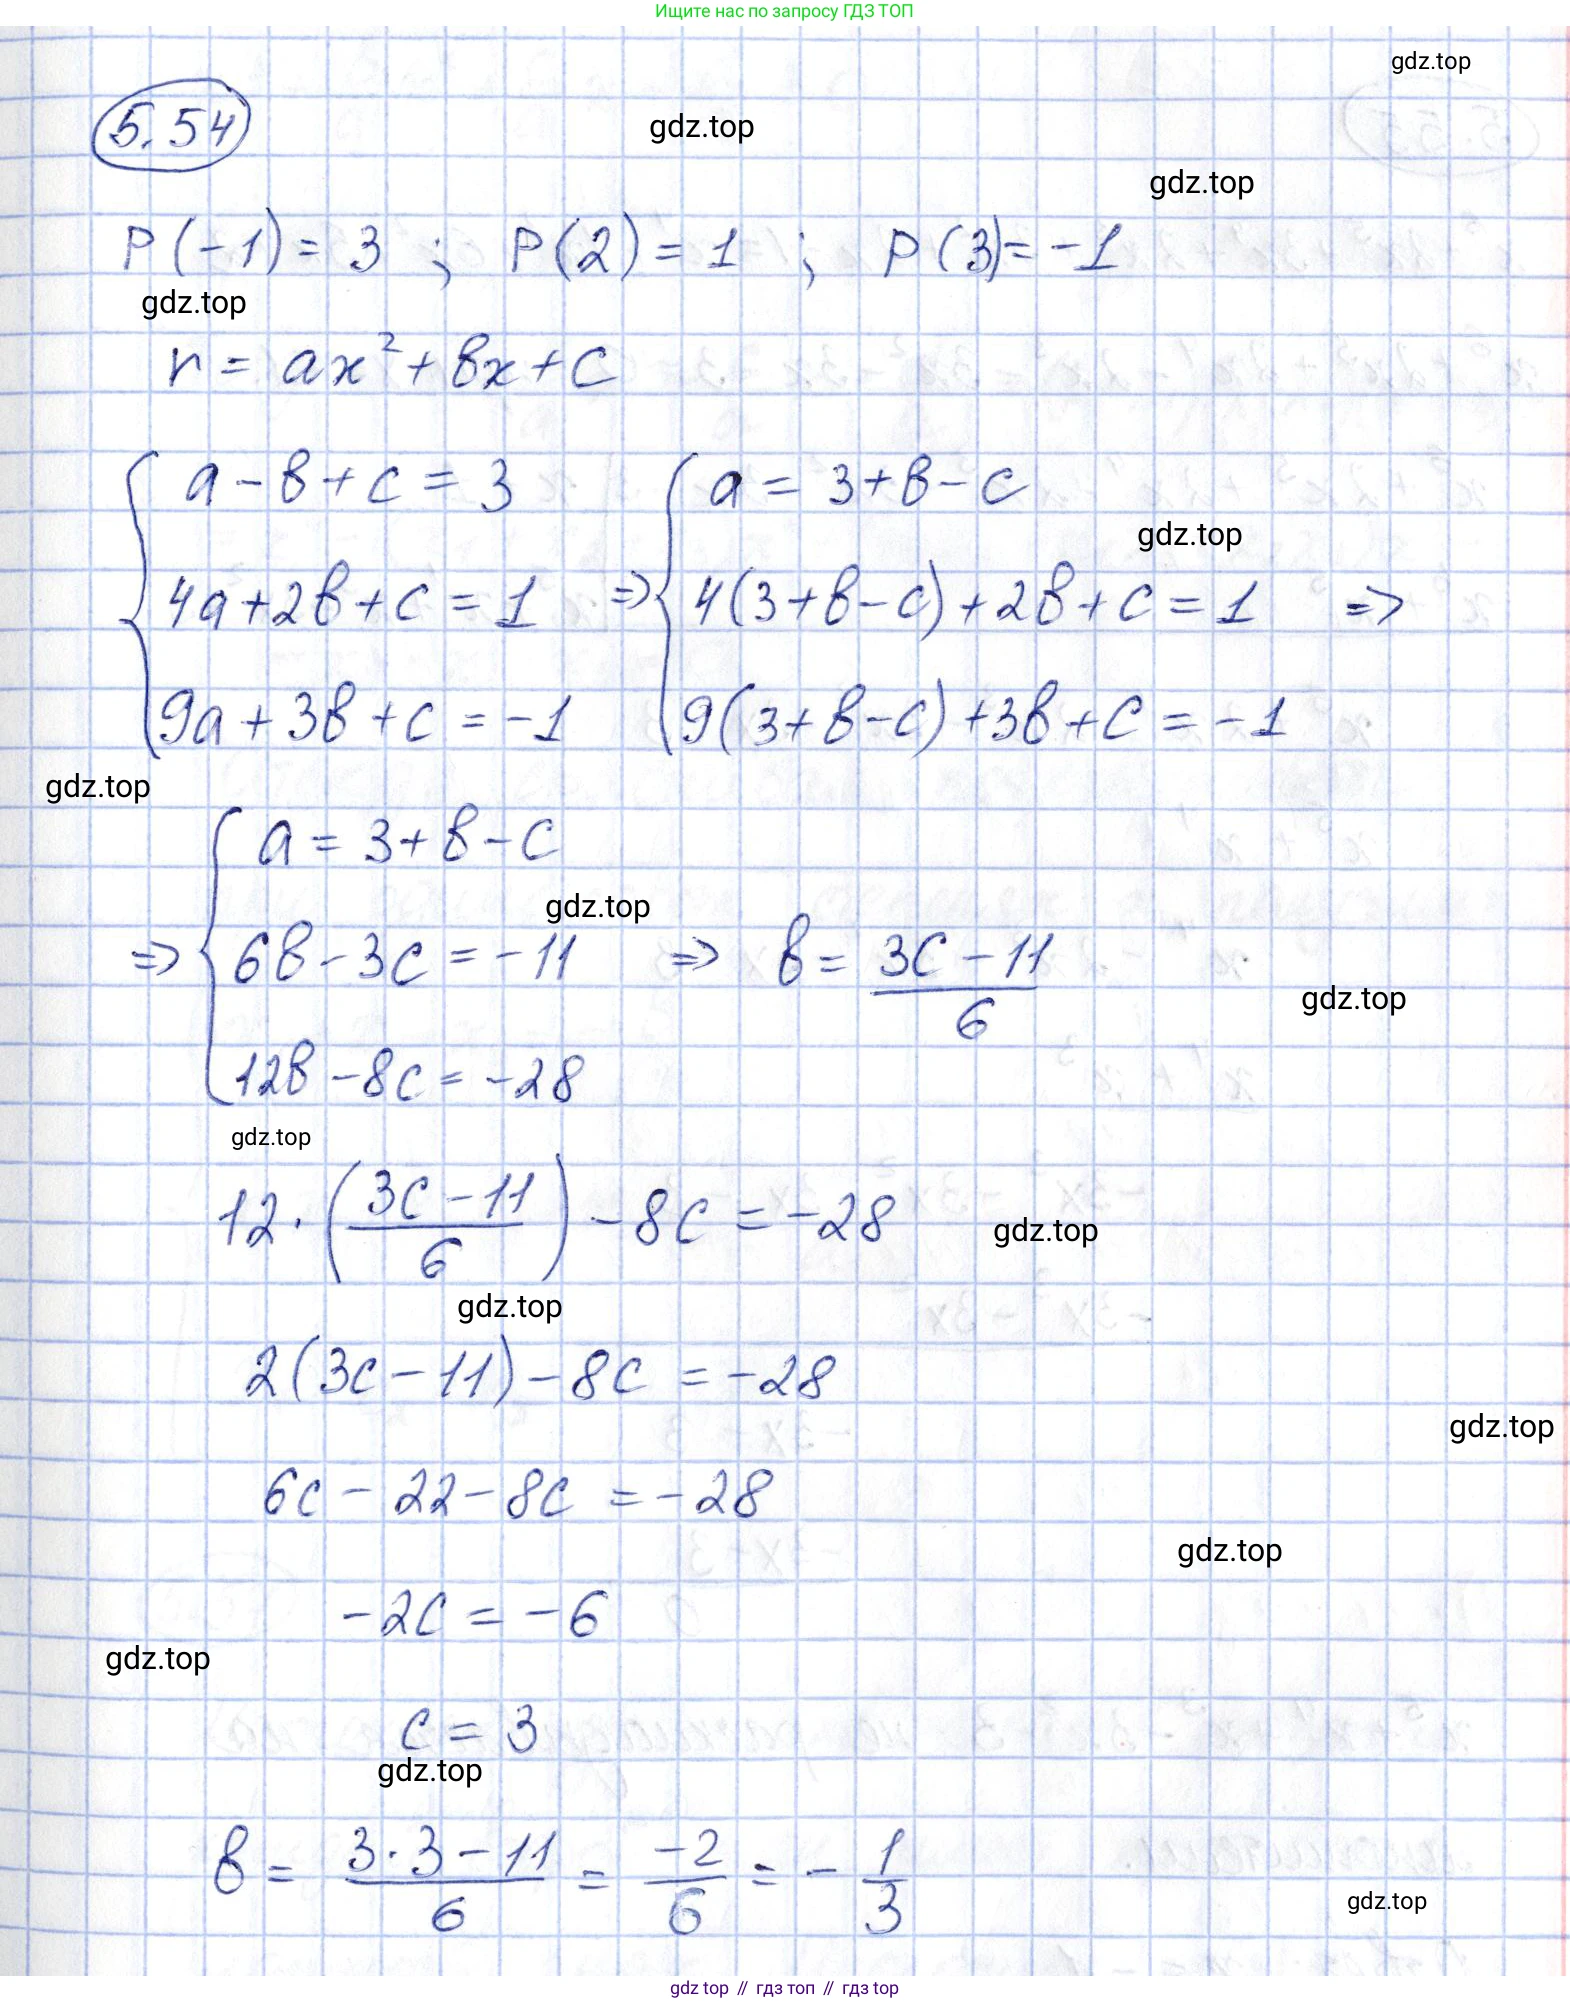 Ищите нас по запросу ГДЗ ТОП
gdz.top
5.54
gdz.top
gdz.top
P(-1) = 3 ; P(2) = 1 ; P(3) = -1
gdz.top
r = ax² + bx + c
{ a - b + c = 3 { a = 3 + b - c
gdz.top
4a + 2b + c = 1 => 4(3 + b - c) + 2b + c = 1 =>
9a + 3b + c = -1 9(3 + b - c) + 3b + c = -1
gdz.top
{ a = 3 + b - c
gdz.top
=> 6b - 3c = -11 => b = (3c - 11)/6
gdz.top
12b - 8c = -28
gdz.top
12 · ((3c - 11)/6) - 8c = -28
gdz.top
gdz.top
2(3c - 11) - 8c = -28
gdz.top
6c - 22 - 8c = -28
gdz.top
-2c = -6
gdz.top
c = 3
gdz.top
b = (3·3 - 11)/6 = -2/6 = - 1/3
gdz.top
gdz top // гдз топ // гдз top